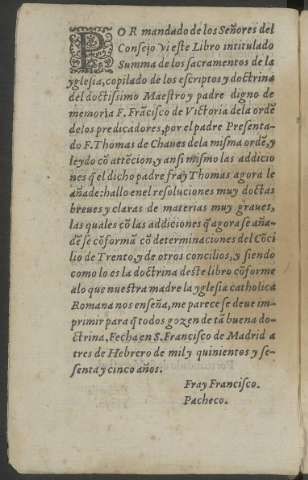 POR mandado de los Señores del
Consejo vi este Libro intitulado
Summa de los sacramentos de la
yglesia, copilado de los escriptos y doctrina
del doctissimo Maestro y padre digno de
memoria F. Frãcisco de Victoria de la ordẽ
de los predicadores, por el padre Presenta-
do F. Thomas de Chaues de la misma ordẽ, y
leydo cõ attẽcion, y ansi mismo las addicio
nes q̃ el dicho padre fray Thomas agora le
añade: hallo en el resoluciones muy doctas
breues y claras de materias muy graues,
las quales cõ las addiciones q̃ agora se aña-
dẽ se cõformã cõ determinaciones del Cõci
lio de Trento, y de otros concilios, y siendo
como lo es la doctrina deste libro cõforme
a lo que nuestra madre la yglesia catholica
Romana nos enseña, me parece se deue im-
primir para q̃ todos gozen de tã buena do-
ctrina. Fecha en S. Francisco de Madrid a
tres de Hebrero de mil y quinientos y se-
senta y cinco años.
Fray Francisco.
Pacheco.